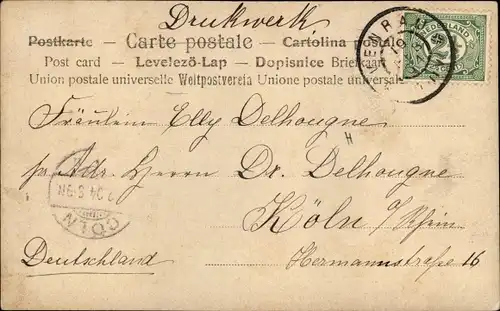 Druckwerk
Postkarte – Carte postale – Cartolina postale
Post card – Levelező-Lap – Dopisnice Briefkaart
Union postale universelle Weltpostverein Unione postale universale
NEDERLAND
2½
Fräulein Elly Delhougne
pr. Adr. Herrn Dr. Delhougne
Köln a/Rhein
CÖLN
Deutschland
Hermannstraße 16